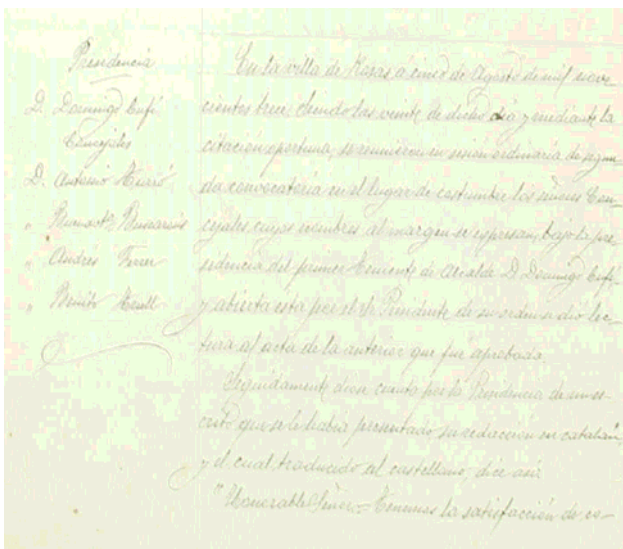 Presidencia
D. Domingo Cufí
Concejales
D. Antonio
" Buscarons
" Andrés Ferrer
" Benito
En la villa de Rosas á cinco de Agosto de mil nove-
cientos trece, siendo las veinte de dicho día y mediante la
citación oportuna, se reunieron en sesión ordinaria de segun-
da convocatoria en el lugar de costumbre los señores Con-
cejales cuyos nombres al margen se expresan, bajo la pre-
sidencia del primer Teniente de Alcalde D. Domingo Cufí
y abierta esta por el Sr. Presidente de su orden se dio lec-
tura al acta de la anterior que fué aprobada
Seguidamente diose cuenta por la Presidencia de un es-
crito que se le había presentado su redacción en catalán,
y el cual, traducido al castellano, dice así
"Honorable Señor = Tenemos la satisfacción de co-